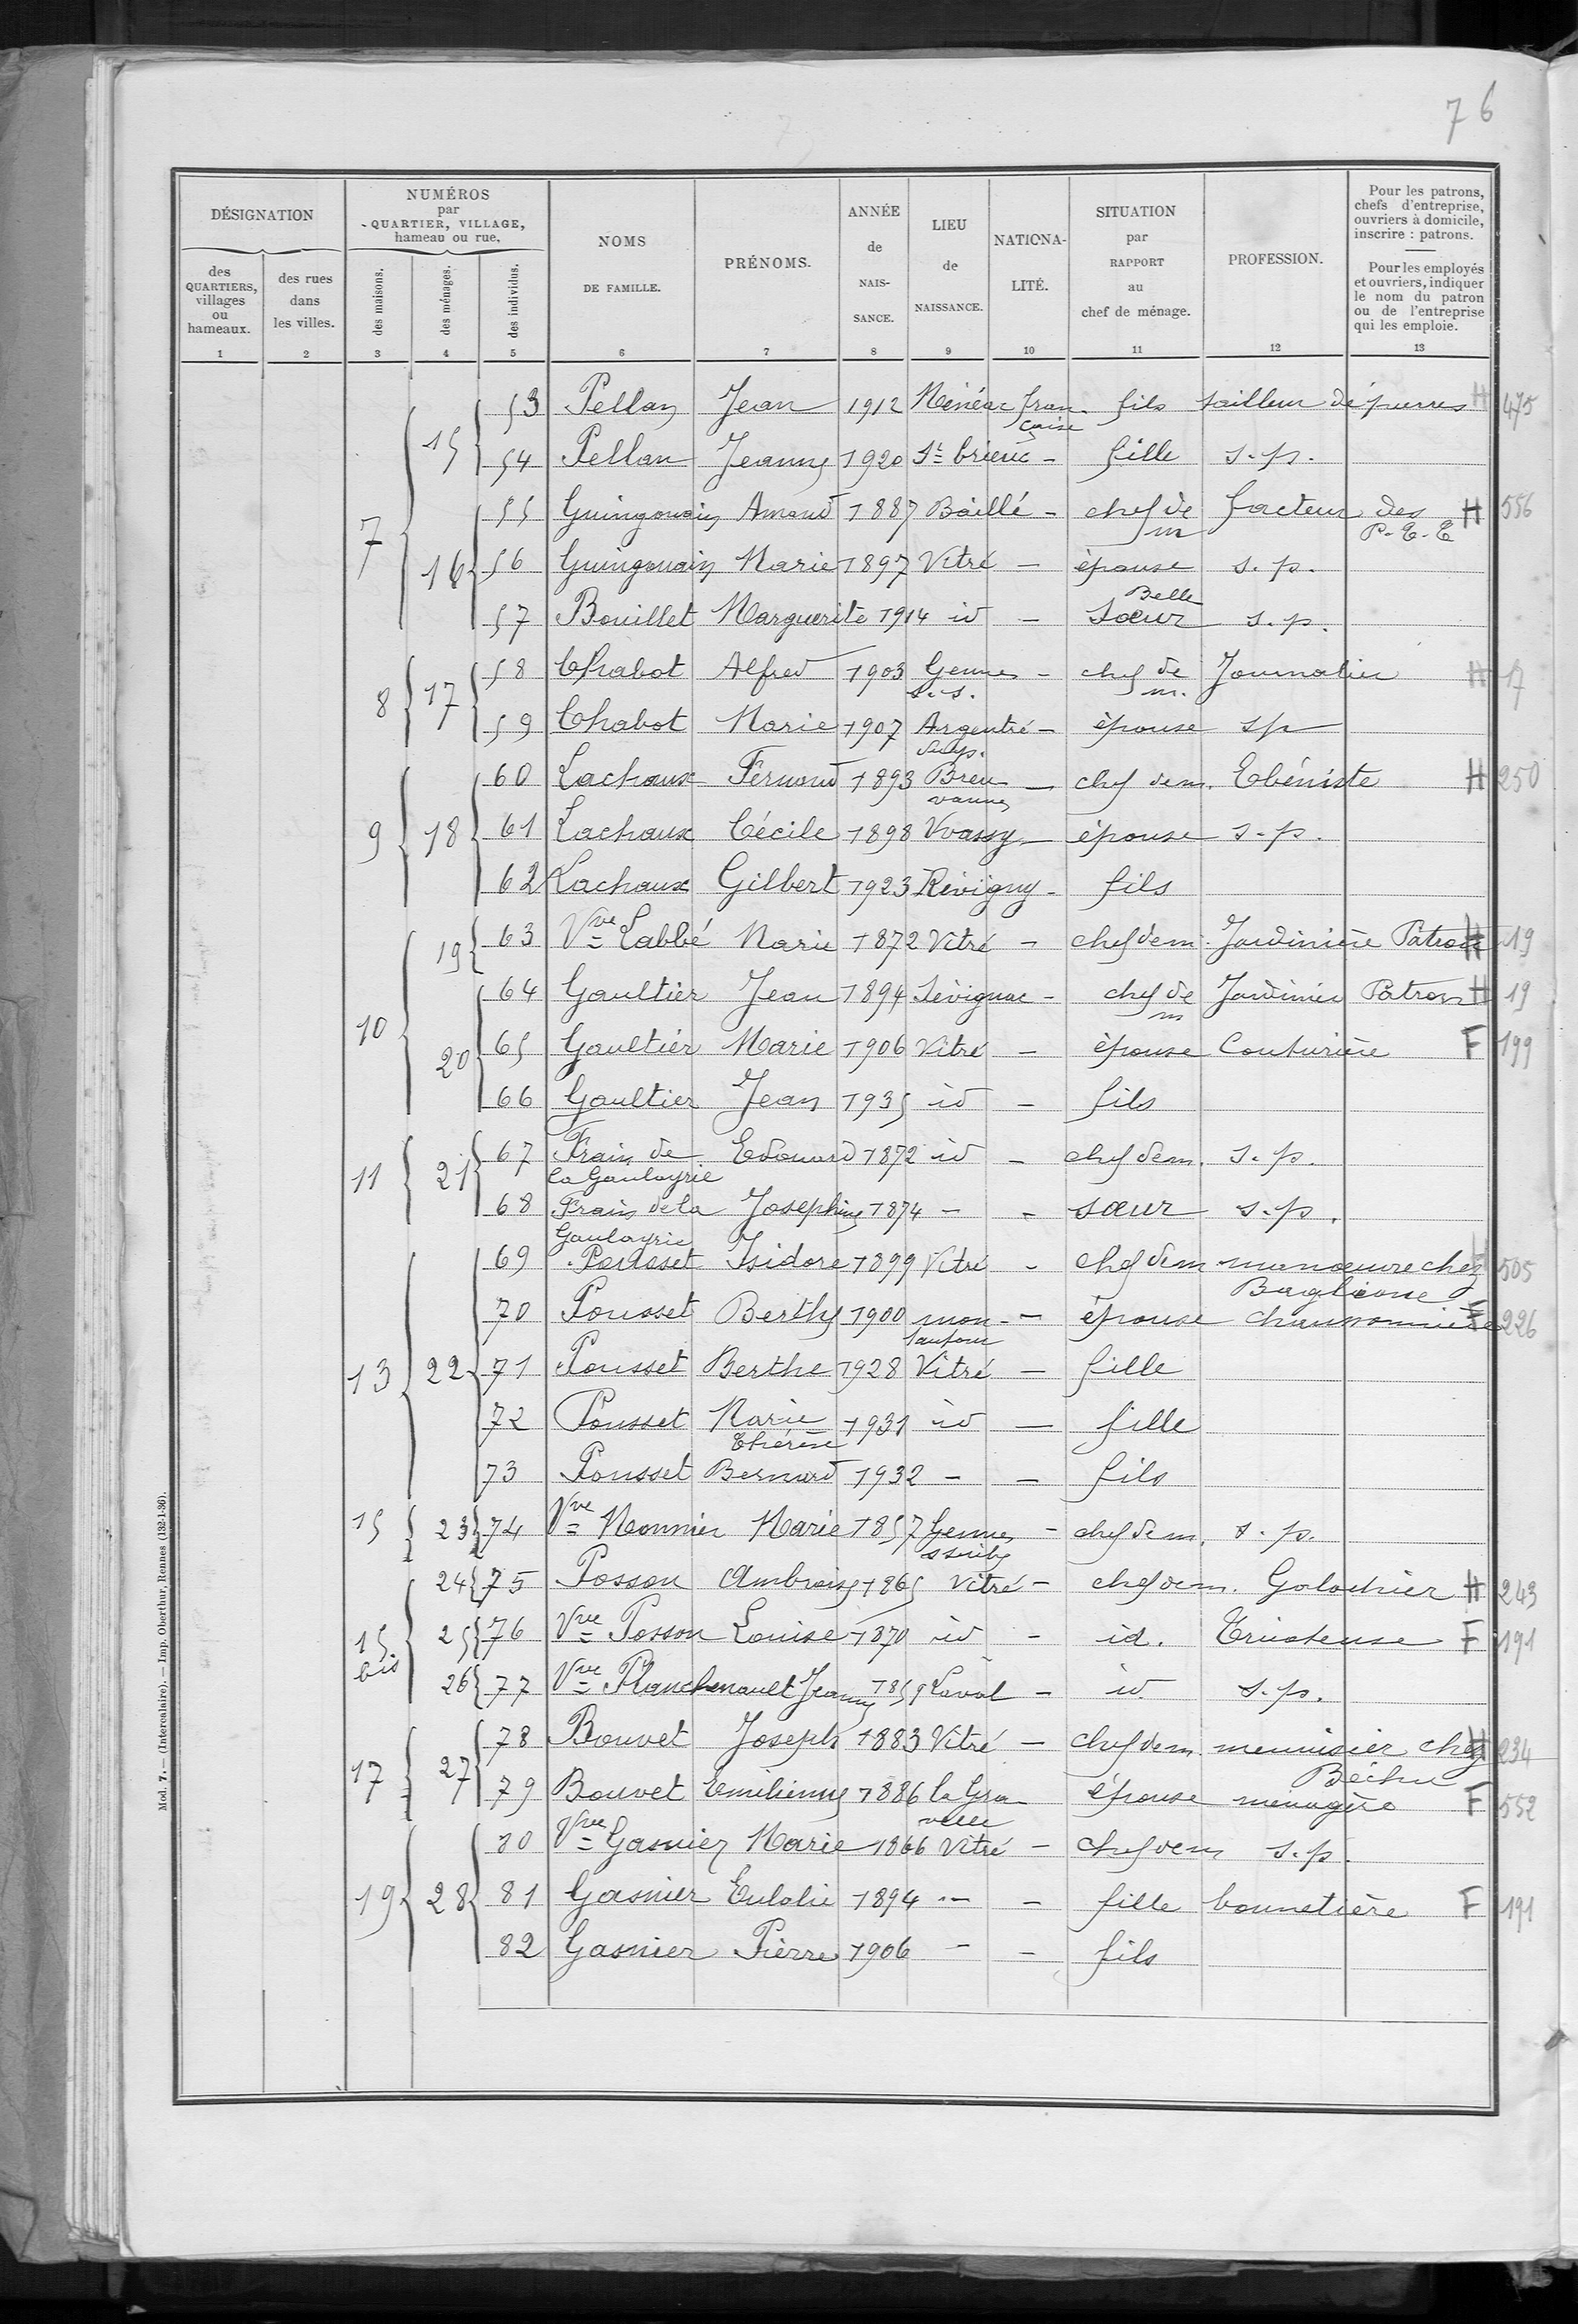 76
DÉSIGNATION
NUMÉROS
par
QUARTIER, VILLAGE,
hameau ou rue.
NOMS
DE FAMILLE.
PRÉNOMS.
ANNÉE
de
NAIS-
SANCE.
LIEU
de
NAISSANCE.
NATIONA-
LITÉ.
SITUATION
par
RAPPORT
au
chef de ménage.
PROFESSION.
Pour les patrons,
chefs d'entreprise,
ouvriers à domicile,
inscrire : patrons.
Pour les employés
et ouvriers, indiquer
le nom du patron
ou de l'entreprise
qui les emploie.
des
QUARTIERS,
villages
ou
hameaux.
des rues
dans
les villes.
des maisons.
des ménages.
des individus.
1 2 3 4 5 6 7 8 9 10 11 12 13
15 53 Pellan Jean 1912 Ménéac fran- fils tailleur de pierres H 475
çaise
54 Pellan Jeanne 1920 St brieuc - fille s.p.
7 16 55 Guingouain Amand 1887 Baillé - chef de facteur des H 556
m P.T.T
56 Guingouain Marie 1897 Vitré - épouse s.p.
Belle
57 Bouillet Marguerite 1914 id - soeur s.p.
8 17 58 Chabot Alfred 1903 Gennes - chef de Journalier H 17
s.s. m.
59 Chabot Marie 1907 Argentré - épouse sp
9 18 60 Lachaux Fernand 1893 Breu - chef de m. Ebéniste H 250
vannes
61 Lachaux Cécile 1898 Wassy - épouse s.p.
62 Lachaux Gilbert 1923 Révigny - fils
10 19 63 Vve Labbé Marie 1872 Vitré - chef de m. Jardinière Patron H 19
20 64 Gaultier Jean 1894 Sévignac - chef de Jardinier Patron H 19
m
65 Gaultier Marie 1906 Vitré - épouse Couturière F 199
66 Gaultier Jean 1935 id - fils
11 21 67 Frain de Edouard 1872 id - chef de m. s.p.
la Gaulayrie
68 Frain de la Joséphine 1874 - - soeur s.p.
Gaulayrie
13 22 69 Pousset Isidore 1899 Vitré - chef de m manoeuvre chez 505
Baglione
70 Pousset Berthe 1900 mon- - épouse chaussonnière F 226
tautour
71 Pousset Berthe 1928 Vitré - fille
72 Pousset Marie 1931 id - fille
Thérèse
73 Pousset Bernard 1932 - - fils
15 23 74 Vve Monnier Marie 1857 Gennes - chef de m. s.p.
24 75 Posson Ambroise 1865 Vitré - chef de m. Galochier H 243
15 bis 25 76 Vve Posson Louise 1870 id - id. Tricoteuse F 191
26 77 Vve Planchenault Jeanne 1859 Laval - id s.p.
17 27 78 Bouvet Joseph 1883 Vitré - chef de m. menuisier chez H 234
Béchu
79 Bouvet Emilienne 1886 la Gra- épouse menagère F 552
velle
19 28 80 Vve Gasnier Marie 1866 Vitré - chef de m s.p.
81 Gasnier Eulalie 1894 - - fille bonnetière F 191
82 Gasnier Pierre 1906 - - fils
Mod. 7. — (Intercalaire). — Imp. Oberthur, Rennes (132-1-36).